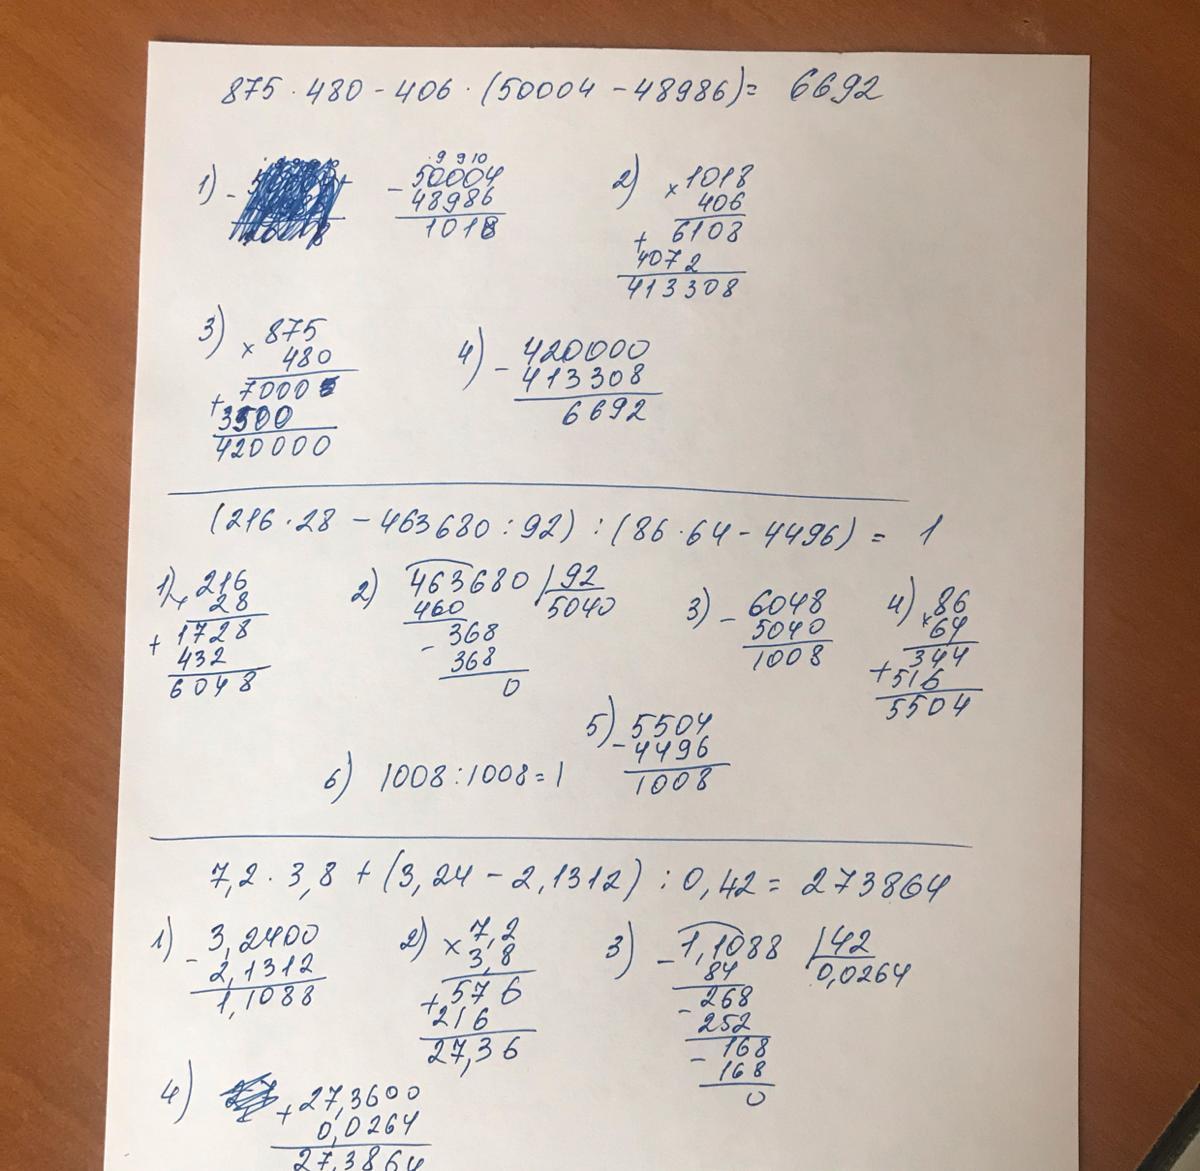 875 · 480 - 406 · (50004 - 48986) = 6692
1) -
9 9 10
- 50004
48986
1018
2) × 1018
406
+ 6108
4072
413308
3) × 875
480
+ 7000
3500
420000
4) - 420000
413308
6692
(216 · 28 - 463680 : 92) : (86 · 64 - 4496) = 1
1) × 216
28
+ 1728
432
6048
2) 463680 | 92
460 5040
- 368
368
0
3) - 6048
5040
1008
4) × 86
64
+ 344
516
5504
5) - 5504
4496
1008
6) 1008 : 1008 = 1
7,2 · 3,8 + (3,24 - 2,1312) : 0,42 = 273864
1) - 3,2400
2,1312
1,1088
2) × 7,2
3,8
+ 576
216
27,36
3) - 1,1088 | 42
84 0,0264
- 268
252
- 168
168
0
4) + 27,3600
0,0264
27,3864